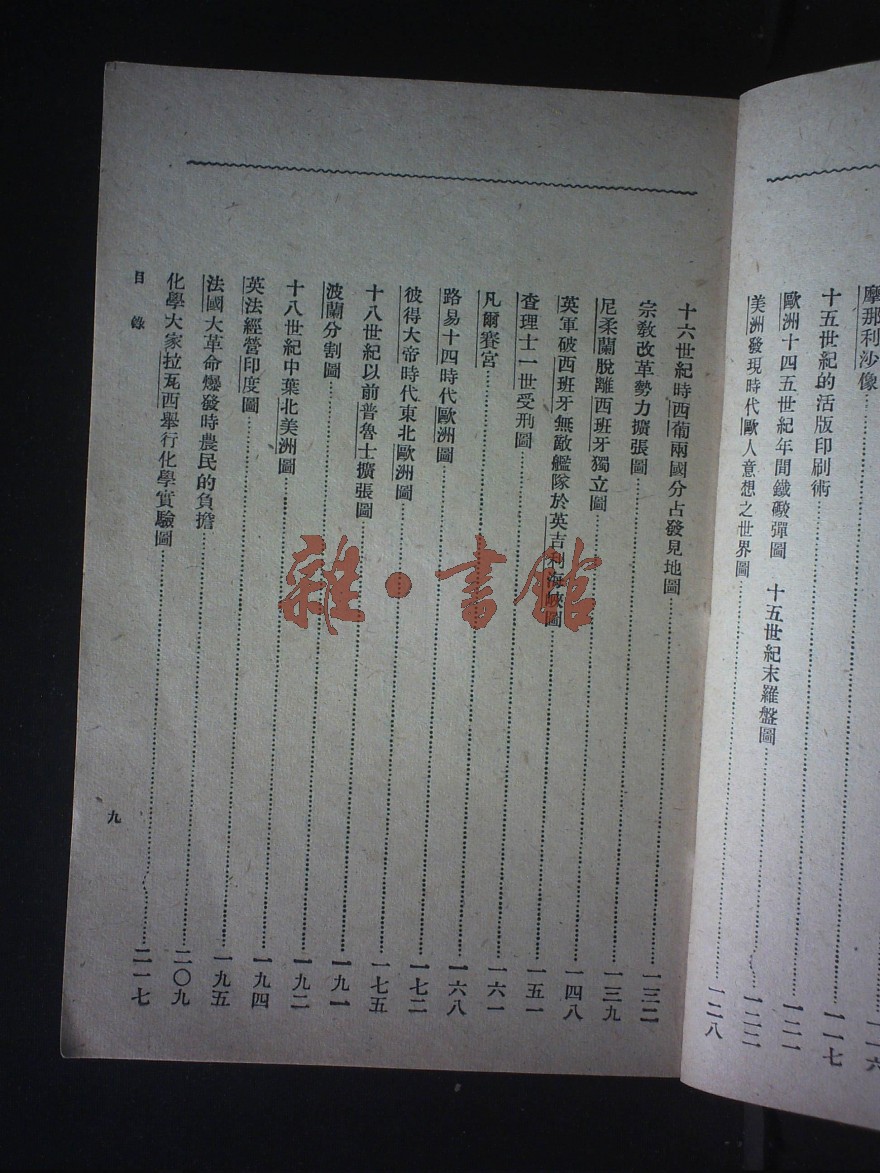 一一六
摩那利沙像……一一七
十五世紀的活版印刷術……一二一
歐洲十四五世紀年間鐵礮彈圖　十五世紀末羅盤圖……一二二
美洲發現時代歐人意想之世界圖……一二八
十六世紀時西葡兩國分占發見地圖……一三二
宗教改革勢力擴張圖……一三九
尼柔蘭脫離西班牙獨立圖……一四八
英軍破西班牙無敵艦隊於英吉利海峽圖……一五一
查理士一世受刑圖……一六一
凡爾賽宮……一六八
路易十四時代歐洲圖……一七二
彼得大帝時代東北歐洲圖……一七五
十八世紀以前普魯士擴張圖……一九一
波蘭分割圖……一九二
十八世紀中葉北美洲圖……一九四
英法經營印度圖……一九五
法國大革命爆發時農民的負擔……二〇九
化學大家拉瓦西舉行化學實驗圖……二一七
目錄
九
雜·書館